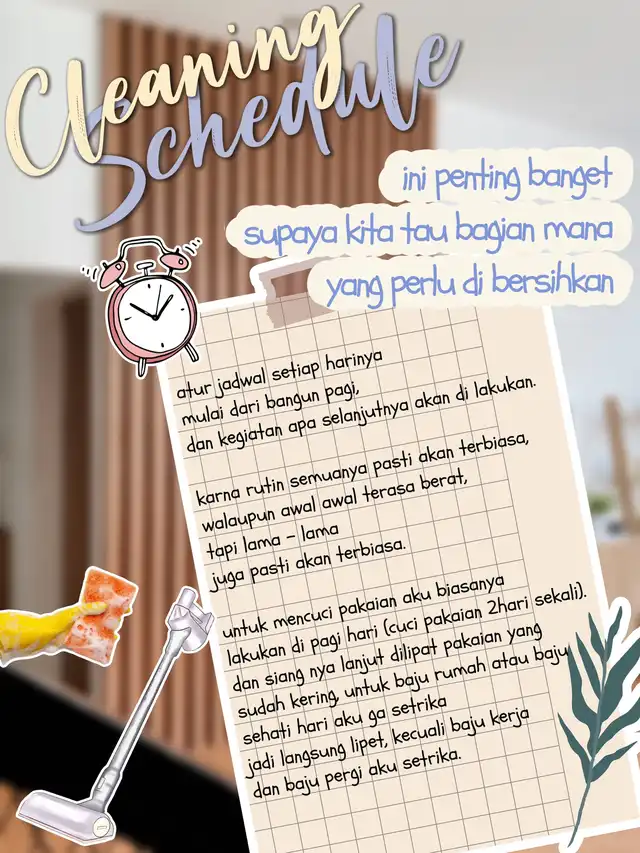 Cleaning
Schedule
ini penting banget
supaya kita tau bagian mana
yang perlu di bersihkan
atur jadwal setiap harinya
mulai dari bangun pagi,
dan kegiatan apa selanjutnya akan di lakukan.
karna rutin semuanya pasti akan terbiasa,
walaupun awal awal terasa berat,
tapi lama - lama
juga pasti akan terbiasa.
untuk mencuci pakaian aku biasanya
lakukan di pagi hari (cuci pakaian 2hari sekali).
dan siang nya lanjut dilipat pakaian yang
sudah kering, untuk baju rumah atau baju
sehati hari aku ga setrika
jadi langsung lipet, kecuali baju kerja
dan baju pergi aku setrika.